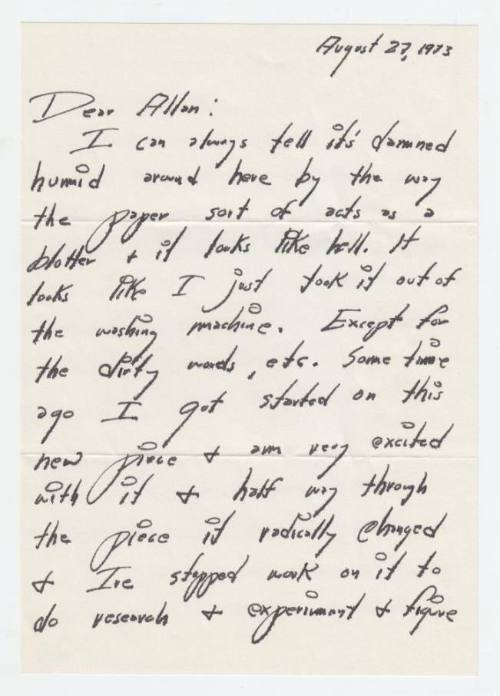 August 27, 1973
Dear Allan:
I can always tell it's damned
humid around here by the way
the paper sort of acts as a
blotter + it looks like hell. It
looks like I just took it out of
the washing machine. Except for
the dirty words, etc. Some time
ago I got started on this
new piece + am very excited
with it + half way through
the piece it radically changed
+ I've stopped work on it to
do research + experiment + figure